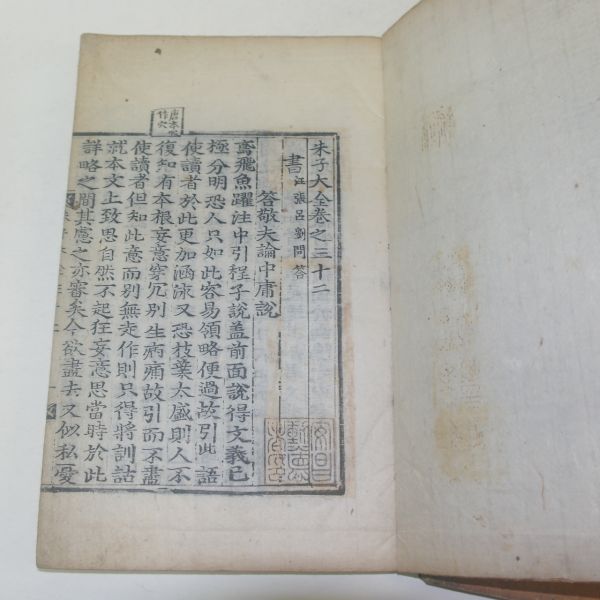 朱子大全卷之三十二
書 汪張呂劉問答
答敬夫論中庸說
鳶飛魚躍注中引程子說蓋前面說得文義已
極分明恐人只如此容易領略便過故引此語
使讀者於此更加涵泳又恐枝葉太盛則人不
復知有本根妄意穿冗別生病痛故引而不盡
使讀者但知此意而別無走作則只得將訓詁
就本文上致思自然不起狂妄意思當時於此
詳略之間其慮之亦審矣今欲盡去又似私憂
唐本冗作穴